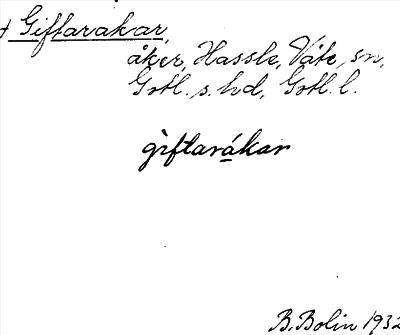 + Giftarakar,
åker, Hassle, Väte sn,
Gotl. s. hd, Gotl. l.
gìftarákar
B. Bolin 1932